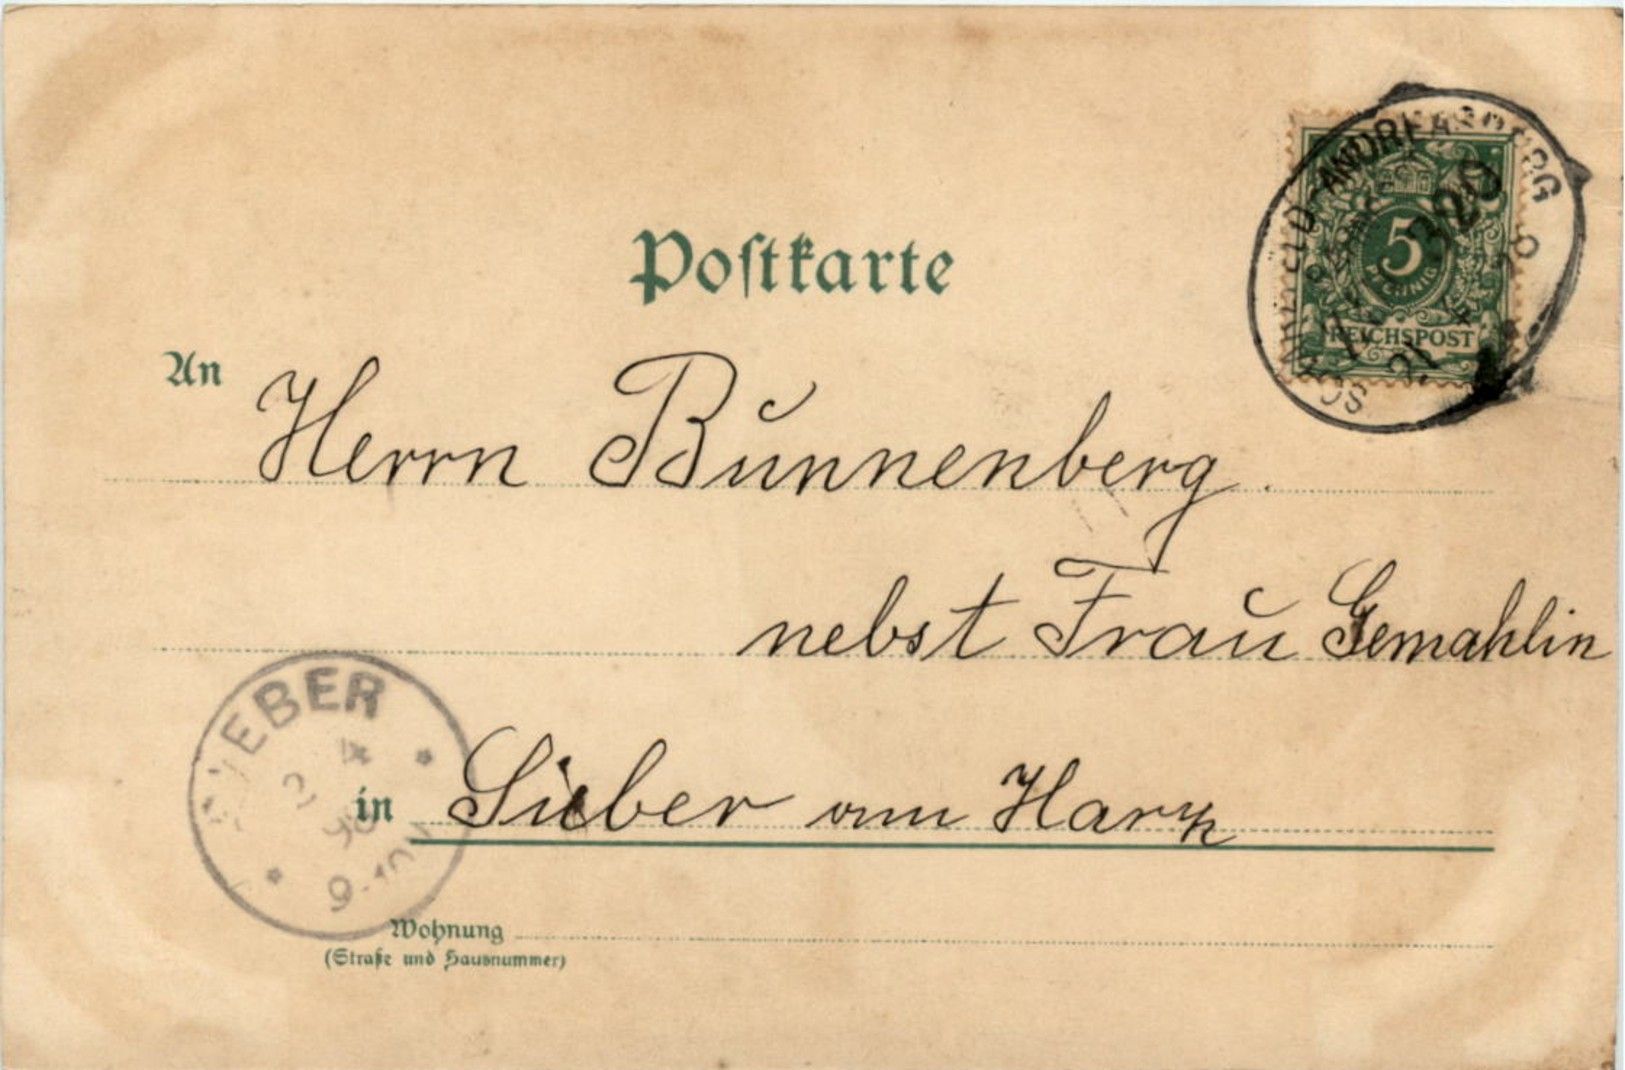 Postkarte
An Herrn Bunnenberg.
nebst Frau Gemahlin
in Sieber am Harz
Wohnung
(Straße und Hausnummer)
5
PFENNIG
REICHSPOST
ANDREASBERG
320
21 4 98
SIEBER
4
98